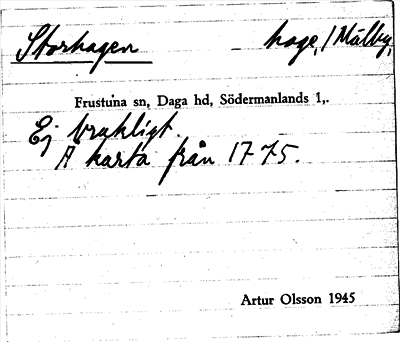 Storhagen – hage, / Mälby,
Frustuna sn, Daga hd, Södermanlands l,.
Ej brukligt.
Å karta från 1775.
Artur Olsson 1945